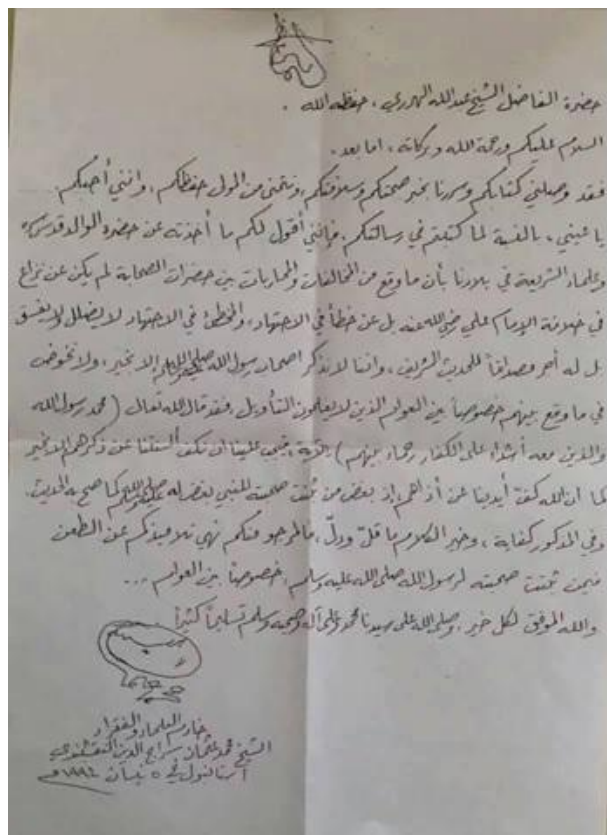 حضرة الفاضل الشيخ عبد الله الهرري، حفظه الله .
السلام عليكم ورحمة الله وبركاته، اما بعد .
فقد وصلني كتابكم وسررنا بخبر صحتكم وسلامتكم، ونتمنى من المولى حفظكم، وانني أحبكم
بالنسبة لما كتبتم في رسالتكم. فإنني أقول لكم ما أخذته عن حضرة الوالد قدس سره
وعلماء الشريعة في بلادنا بأن ما وقع من المخالفات والمحاربات بين حضرات الصحابة لم يكن عن نزاع
في خلافة الإمام علي رضي الله عنه بل عن خطأ في الاجتهاد، والمخطئ في الاجتهاد لا يضلل ولا يفسق
بل له أجر مصداقاً للحديث الشريف، واننا لا نذكر اصحاب رسول الله صلى الله عليه وسلم الا بخير، ولا نخوض
في ما وقع بينهم خصوصاً بين العوام الذين لا يعلمون التأويل، فقد قال الله تعالى (محمد رسول الله
والذين معه أشداء على الكفار رحماء بينهم) الآية، فيجب علينا ان نكف ألسنتنا عن ذكرهم الا بخير
كما ان الله كف أيدينا عن أذاهم، إذ بغض من ثبتت صحبته للنبي بغض له صلى الله عليه وسلم كما صح به الحديث.
وفي المذكور كفاية، وخير الكلام ما قل ودلّ، فالمرجو منكم نهي تلاميذكم عن الطعن
فيمن ثبتت صحبته لرسول الله صلى الله عليه وسلم، خصوصاً بين العوام ...
والله الموفق لكل خير. وصلى الله على سيدنا محمد وعلى آله وصحبه وسلم تسليماً كثيراً
خادم العلماء والفقراء
الشيخ محمد عثمان سراج الدين النقشبندي
استانبول في ٥ نيسان ١٩٩٤م